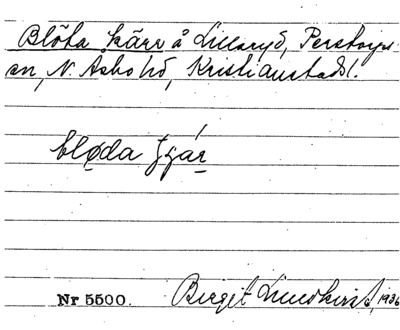 Blöta kärr å Lillaryd, Perstorps
sn, N. Åsbo hd, Kristianstads l.
bløda tjár
Nr 5500. Birgit Lindkvist, 1936